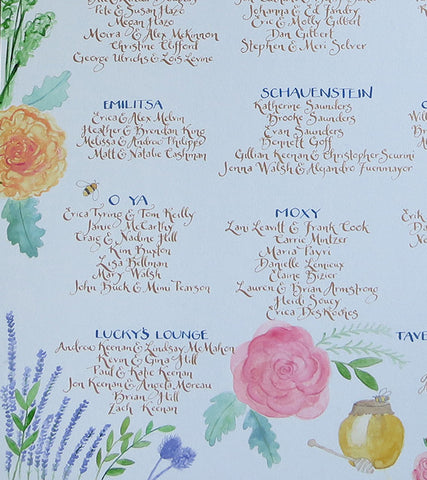 Pete & Susan Hazo
Megan Hazo
Moira & Alex McKinnon
Christine Clifford
George Ulrichs & Lois Levine
Johanna & Ed Pandey
Eric & Molly Gilbert
Dan Gilbert
Stephen & Meri Selver
EMILITSA
Erica & Alex Melvin
Heather & Brendan King
Melissa & Andrew Philippi
Matt & Natalie Cashman
SCHAUENSTEIN
Katherine Saunders
Brooke Saunders
Evan Saunders
Bennett Goff
Gillian Keenan & Christopher Scurini
Jenna Walsh & Alejandro Fuenmayor
O YA
Erica Tyring & Tom Reilly
Janie McCarthy
Craig & Nadine Hill
Kim Buxton
Lisa Bellman
Mary Walsh
John Buck & Mimi Pearson
MOXY
Lani Leavitt & Frank Cook
Carrie Mintzer
Maria Payri
Danielle Lemieux
Elaine Bizier
Lauren & Brian Armstrong
Heidi Soucy
Erica DesRoches
LUCKY'S LOUNGE
Andrew Keenan & Lindsay McMahon
Kevin & Gina Hill
Paul & Katie Keenan
Jon Keenan & Angela Moreau
Brian Hill
Zach Keenan